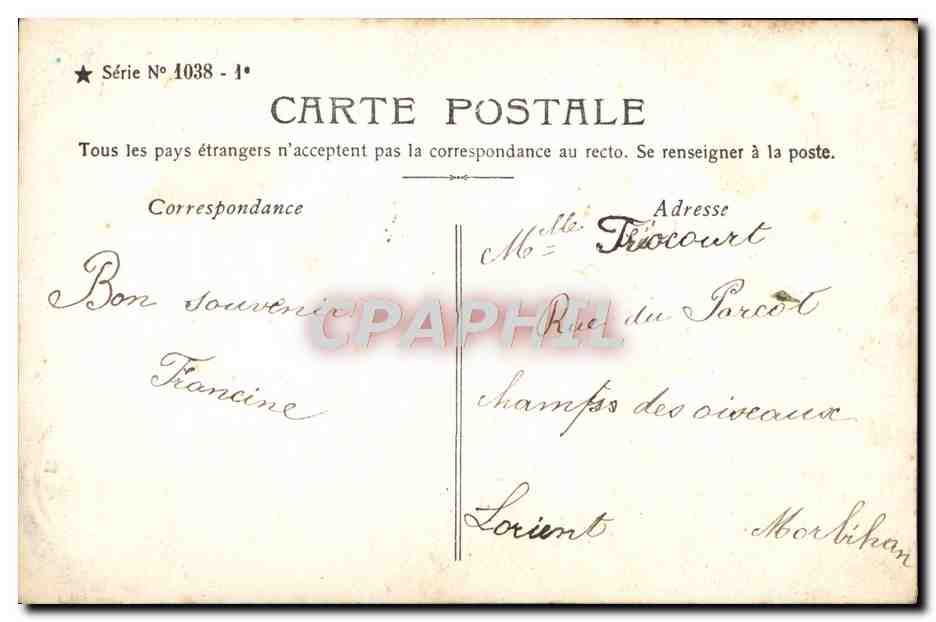 ★ Série Nº 1038 - 1º
CARTE POSTALE
Tous les pays étrangers n'acceptent pas la correspondance au recto. Se renseigner à la poste.
Correspondance
Bon souvenir
Francine
Adresse
Mlle Triocourt
Rue du Parcot
champs des oiseaux
Lorient Morbihan
CPAPHIL